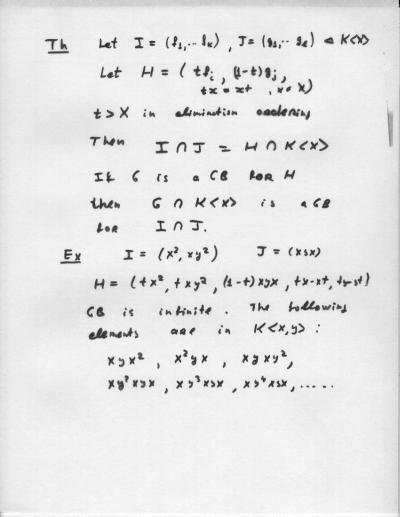 Th Let I = (f₁,.. fₖ) , J = (g₁,.. gₑ) ⊲ K<X>
Let H = ( tfᵢ , (1-t)gⱼ,
tx = xt , x ∈ X)
t > X in elimination ordering
Then I ∩ J = H ∩ K<X>
If G is a GB for H
then G ∩ K<X> is a GB
for I ∩ J.
Ex I = (x², xy²) J = (xyx)
H = (tx², txy², (1-t)xyx, tx-xt, ty-yt)
GB is infinite. The following
elements are in K<x,y> :
xyx² , x²yx , xyxy²,
xy²xyx , xy³xyx , xy⁴xyx, .....